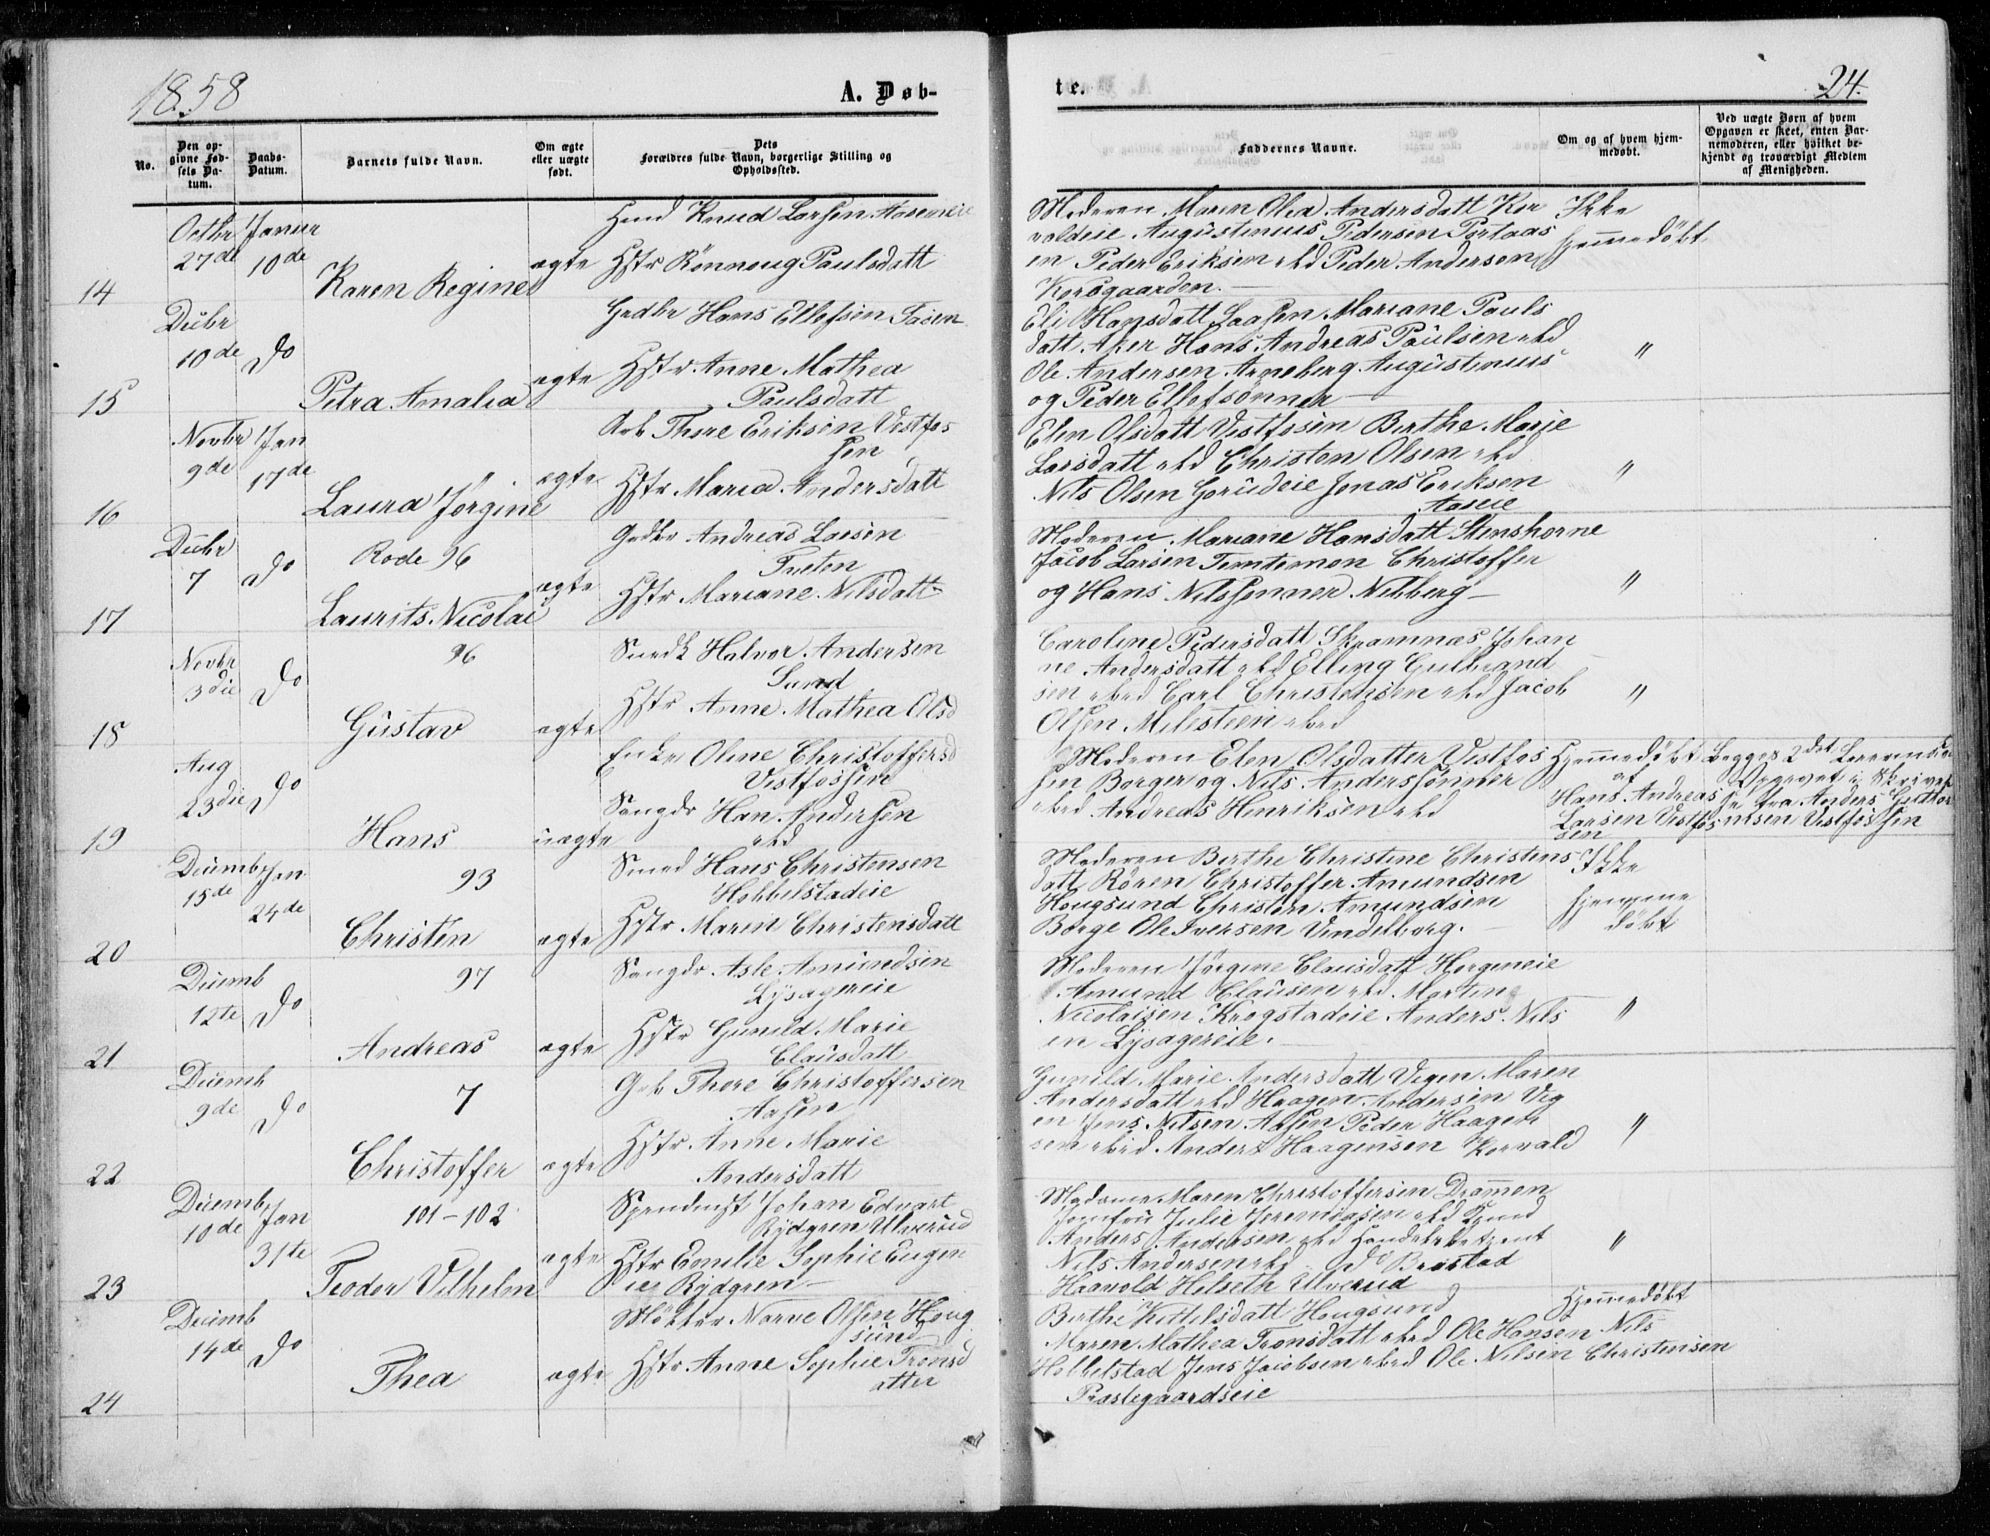 1858
A. Døb-
te.
24.
No.
Den op-
givne Fød-
sels Da-
tum.
Daabs-
Datum.
Barnets fulde Navn.
Om ægte
eller uægte
født.
Dets
Forældres fulde Navn, borgerlige Stilling og
Opholdssted.
Faddernes Navne.
Om og af hvem hjem-
medøbt.
Ved uægte Børn af hvem
Opgaven er skeet, enten Bar-
nemoderen, eller hvilket be-
kjendt og troværdigt Medlem
af Menigheden.
14
Octbr
27de
Januar
10de
Karen Regine
ægte
Knud Larsen Aaserneie
Hstr Rønnoug Paulsdatt
Moderen Maren Olea Andersdatt Kor
valdeie Augustinus Pedersen Portaas
en Peder Eriksen Peder Andersen
Korsgaarden.
Ikke
hjemmedøbt
15
Decbr
10de
do
Petra Amalia
ægte
Grdbr Hans Ellefsen
Hstr Anne Mathea
Paulsdatt
Eli Hansdatt Mariane Pauls
datt Aker Hans Andreas Paulsen
Ole Andersen Arneberg Augustinius
og Peder Ellefsønner
"
16
Novbr
9de
Jan
17de
Laura Jørgine
ægte
Arb Thore Eriksen Vestfos
sen
Hstr Maria Andersdatt
Elen Olsdatt Vestfosen Berthe Marie
Larsdatt Christen Olsen
Nils Olsen Jonas Eriksen
Aaseie
"
17
Decbr
7
do
Rode 96
Laurits Nicolai
ægte
Grdbr Andreas Larsen
Tveten
Hstr Mariane Nilsdatt
Moderen Mariane Hansdatt Stenshorne
Jacob Larsen Temtemon Christoffer
og Hans Nilssønner Nilberg
"
18
Novbr
3die
do
96
Gustav
ægte
Halvor Andersen
Sund
Hstr Anne Mathea Olsd
Caroline Pedersdatt Skramnæs Johan
ne Andersdatt Elling Gulbrand
sen Carl Christensen Jacob
Olsen Milesteen
"
19
Aug
23die
do
Hans
uægte
Enke Oline Christoffersd
Vestfossen
Hans Andersen
Moderen Elen Olsdatter Vestfos
sen Borger og Nils Anderssønner
Andreas Henriksen
Hjemmedøbt
af
Hans Andreas
Larsen Vestfos
sen
Begges 2det
fra Anders
Vestfossen
20
Decembr
15de
Jan
24de
93
Christen
ægte
Smed Hans Christensen
Hobbelstadeie
Hstr Maren Christensdatt
Moderen Berthe Christine Christens
datt Røren Christoffer Amundsen
Hougsund Christen Amundsen
Borge Ole Iversen Vindelborg.
Ikke
hjemme
døbt
21
Decemb
12te
do
97
Andreas
ægte
Asle Amundsen
Lysagereie
Hstr Gunild Marie
Clausdatt
Moderen Jørgine Clausdatt Horgeneie
Amund Clausen Martin
Nicolaisen Krogstadeie Anders Nils
en Lysagereie.
"
22
Decemb
9de
do
7
Christoffer
ægte
Thore Christoffersen
Aasen
Hstr Anne Marie
Andersdatt
Gunild Marie Andersdatt Vegen Maren
Andersdatt Haagen Andersen Veg
en Jens Nilsen Aasen Peder Haagen
sen Anders Haagensen Korvald
"
23
Decembr
10de
Jan
31te
101-102
Teodor Vilhelm
ægte
Johan Eduart
Rydgren Ulverud
Hstr Emilie Sophie Eugen
ie Rydgren
Madame Maren Christoffersen Drammen
Jomfru Julie Jeremiasen
Anders Andersen
Nils Andersen do Bristad
Haavold Helseth Ulverud
"
24
Decemb
14de
do
Thea
ægte
Møller Narve Olsen Houg
sund
Hstr Anne Sophie Tronsd
atter
Berthe Kittilsdatt Hougsund
Maren Mathea Tronsdatt Ole Hansen Nils
Hobbelstad Jens Jacobsen Ole Nilsen Christensen
Præstegaardseie
Hjemmedøbt